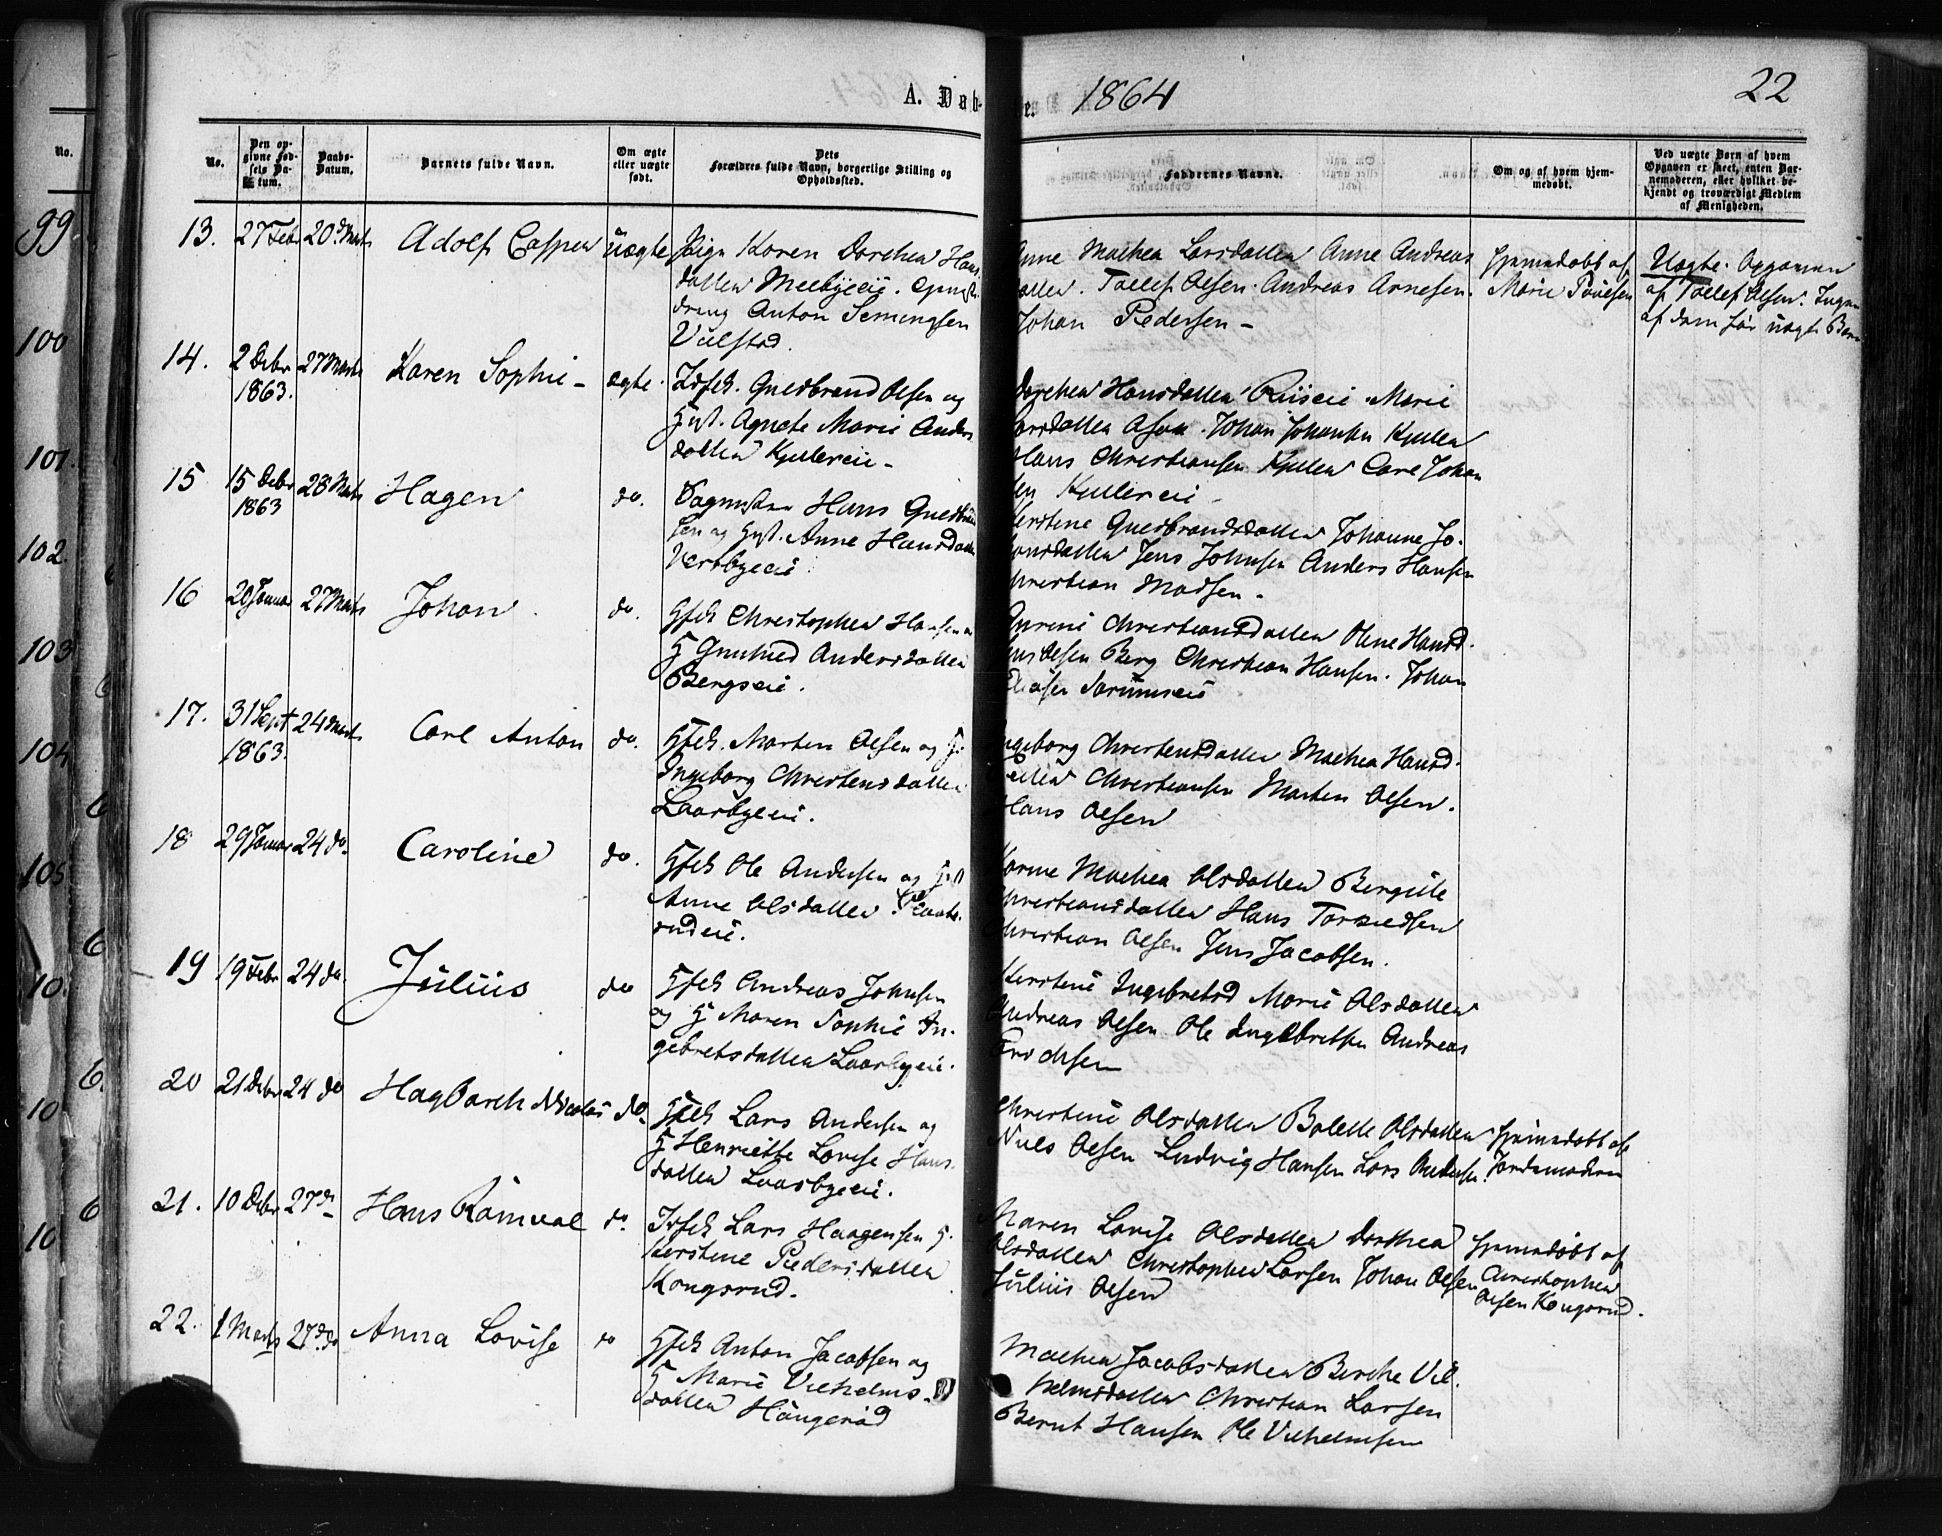 A. Dåb-
e. 1864
22
No.
Den op-
givne Fød-
sels Da-
tum.
Daabs-
Datum.
Barnets fulde Navn.
Om ægte
eller uægte
født.
Dets
Forældres fulde Navn, borgerlige Stilling og
Opholdssted.
Faddernes Navne.
Om og af hvem hjem-
medøbt.
Ved uægte Børn af hvem
Opgaven er skeet, enten Bar-
nemoderen, eller hvilket be-
kjendt og troværdigt Medlem
af Menigheden.
13. 27 Febr 20 Marts Adolf Casper uægte Pige Karen Dorthea Hans
datter Melbyeie.
Anton Semingsen
Anne Mathea Larsdatter Anne Andreas
datter. Tollef Olsen. Andreas Arnesen.
Johan Pedersen
Hjemmedøbt af
Marie Poulsen
Uægte. Opgaven
af Tollef Olsen.
14. 2 Debr 27 Marts Karen Sophie ægte.
1863.
Guldbrand Olsen og
Agnete Marie Anders
datter Kjellereie
Dorthea Hansdatter Riiseie Marie
Larsdatter Johan Johansen Kjeller
Hans Christiansen Kjeller Carl Johan
sen Kjellereie
15 15 Debr 28 Marts Hagen do.
1863
Hans Guldbrand
sen og Hust. Anne Hansdatter
Vestbyeie
Kerstine Guldbrandsdatter Johanne Jo-
hansdatter Jens Johnsen Anders Hansen
Christian Madsen
16 20 Januar 27 Marts Johan. do.
Gfdk Christopher Hansen og
H Gunhild Andersdatter
Bergseie.
Christiansdatter Oline Hansd.
Olsen Berg Christian Hansen. Johan
Sørumseie
17. 31 Sept 24 Marts Carl Anton do.
1863.
Hfdk. Morten Olsen og H.
Ingeborg Christensdatter
Laarbyeie.
Ingeborg Christensdatter Mathea Hansd.
Christiansen Morten Olsen.
Hans Olsen
18 29 Januar 24 do. Caroline do.
Hfdk Ole Andersen og Hust
Anne Olsdatter
rudeie.
Karine Mathea Olsdatter Bergitte
Christiansdatter Hans Torkildsen
Christian Olsen Jens Jacobsen.
19 19 Febr 24 do. Julius do
Hfdk Andreas Johnsen
og H Maren Sophie In-
gebretsdatter Laarbyeie.
Kerstine Ingebretsd Marie Olsdatter
Andreas Olsen Ole Ingebretsen Andreas
20 21 Debr 24 do Hagbarth Nicolai do.
Hfdk Lars Andersen og
H Henriette Lovise Hans
datter Laarbyeie.
Christine Olsdatter Bolette Olsdatter
Nils Olsen Ludvig Hansen Lars Andersen
Hjemmedøbt af
Jordemoderen
21. 10 Debr 27 do Hans Romual do.
Lars Haagensen H.
Kerstine Pedersdatter
Kongsrud.
Maren Lovise Olsdatter Dorthea
Olsdatter Christopher Larsen Johan Olsen
Julius Olsen
Hjemmedøbt af
Christopher
Olsen Kongsrud.
22. 1 Marts 27 do Anna Lovise do
Hfdk Anton Jacobsen og
H Marie Vilhelms-
datter Haugerød
Mathea Jacobsdatter Berthe Vil-
helmsdatter Christian Larsen
Bernt Hansen Ole Vilhelmsen
No.
99
100
101.
102
103
104
105
10
10
10